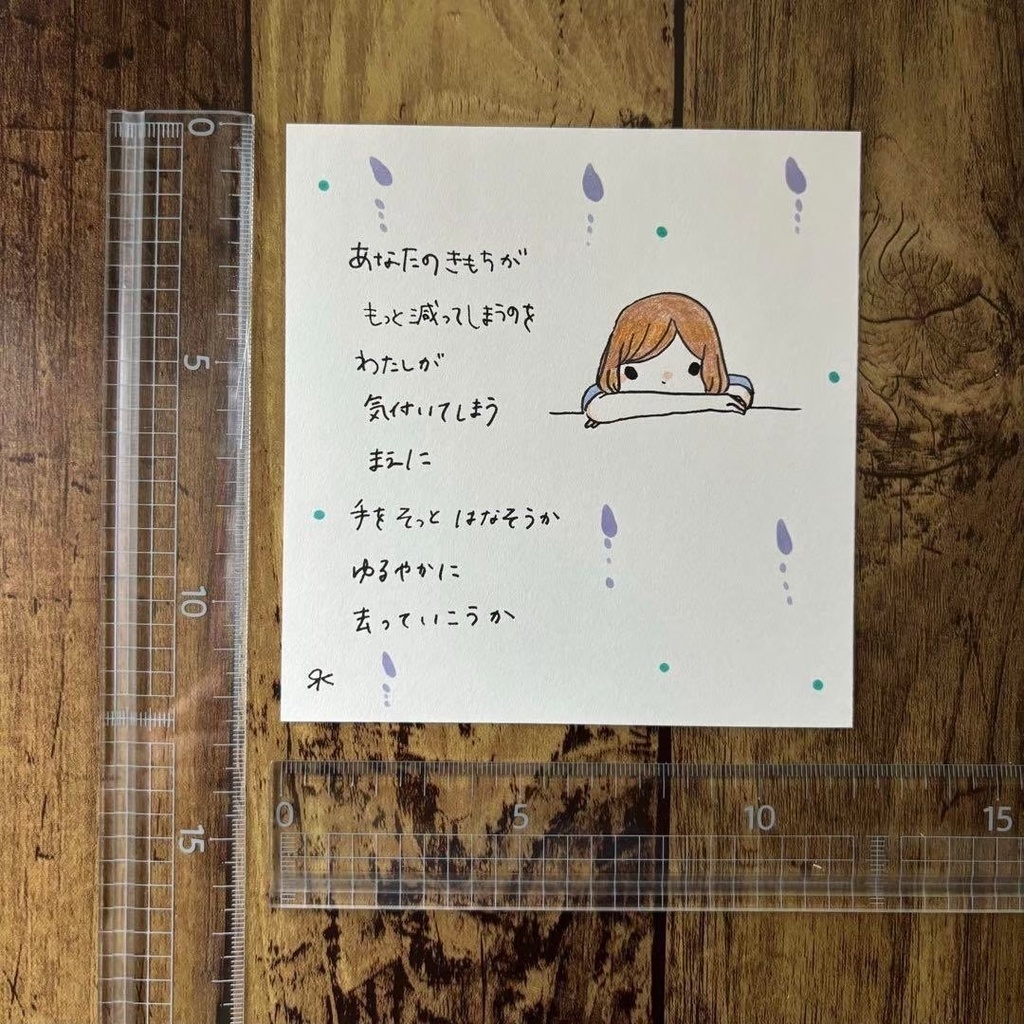 あなたのきもちが
もっと減ってしまうのを
わたしが
気付いてしまう
まえに
手をそっと はなそうか
ゆるやかに
去っていこうか
0
5
10
15
0
5
10
15